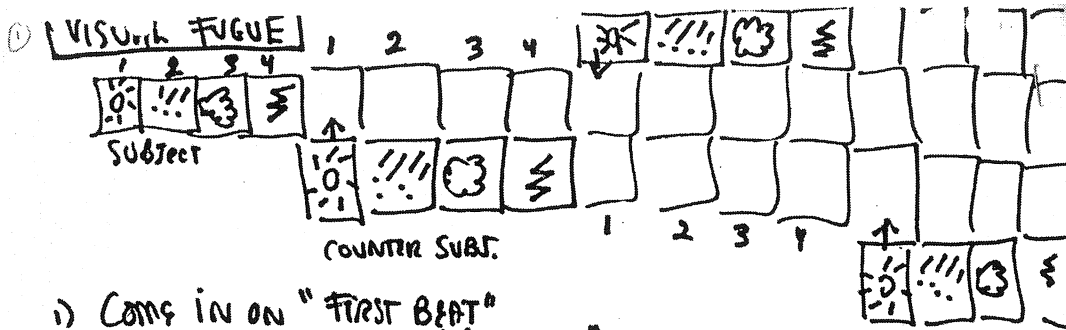 ① VISUAL FUGUE
1 2 3 4
1 2 3 4
SUBJECT
COUNTER SUBJ.
1 2 3 4
1) COME IN ON "FIRST BEAT"